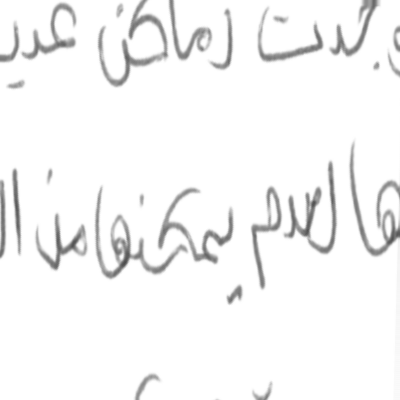 وجدت رماكن عديد
ها لعدم يمكنها من ال